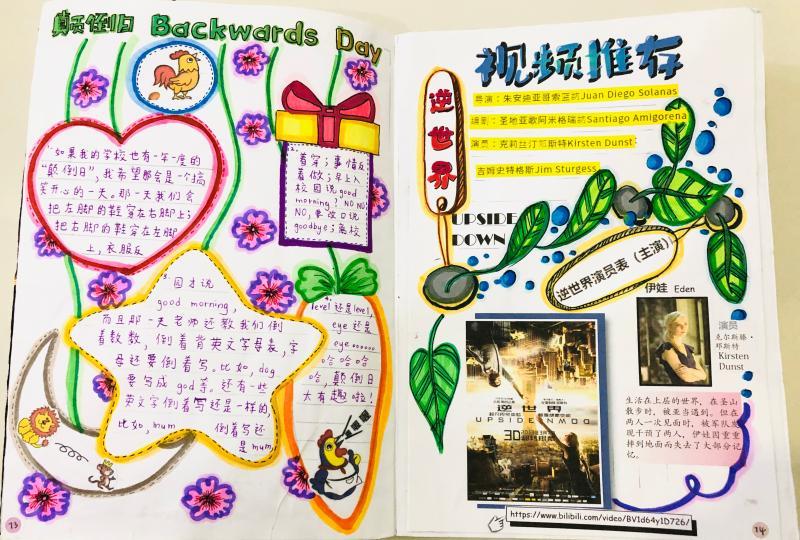 颠倒日 Backwards Day
"如果我的学校也有一年一度的
"颠倒日",我希望都会是一个搞
笑开心的一天。那一天我们会
把左脚的鞋穿在右脚上,
把右脚的鞋穿在左脚
上,衣服反
着穿,事情反
着做,早上入
校园说good
morning? NO NO
NO, 要改口说
goodbye,离校
园才说
good morning,
而且那一天老师还教我们倒
着数数,倒着背英文字母表,字
母还要倒着写。比如,dog
要写成 god等。还有一些
英文字倒着写还是一样的,
比如,mum 倒着写还
是mum,
level还是level,
eye 还是
eye
哈哈哈
哈,颠倒日
太有趣啦!
13
视频推荐
导演:朱安迪亚哥索兰纳Juan Diego Solanas
编剧:圣地亚歌阿米格瑞纳Santiago Amigorena
演员:克莉丝汀邓斯特Kirsten Dunst
吉姆史特格斯Jim Sturgess
逆世界
UPSIDE
DOWN
逆世界演员表(主演)
伊娃 Eden
演员
克尔斯滕·
邓斯特
Kirsten
Dunst
逆世界
UPSIDE
3D
生活在上层的世界,在圣山
散步时,被亚当遇到。但在
两人一次见面时,被军队发
现干预了两人,伊娃因重重
摔到地面而失去了大部分记
忆。
https://www.bilibili.com/video/BV1d64y1D726/
14